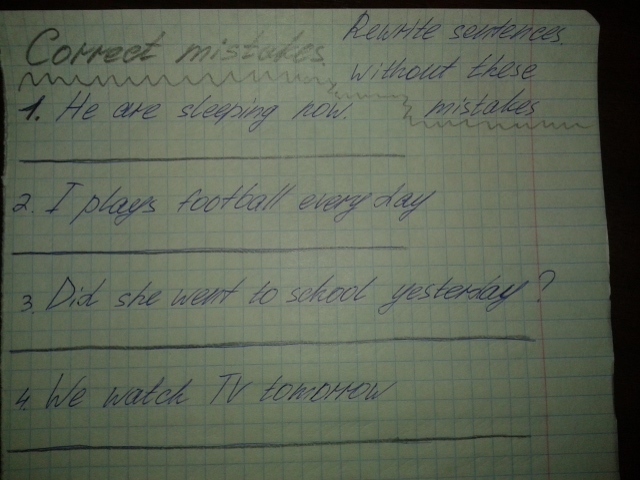 Correct mistakes.
Rewrite sentences
without these
mistakes
1. He are sleeping now.
2. I plays football every day
3. Did she went to school yesterday?
4. We watch TV tomorrow